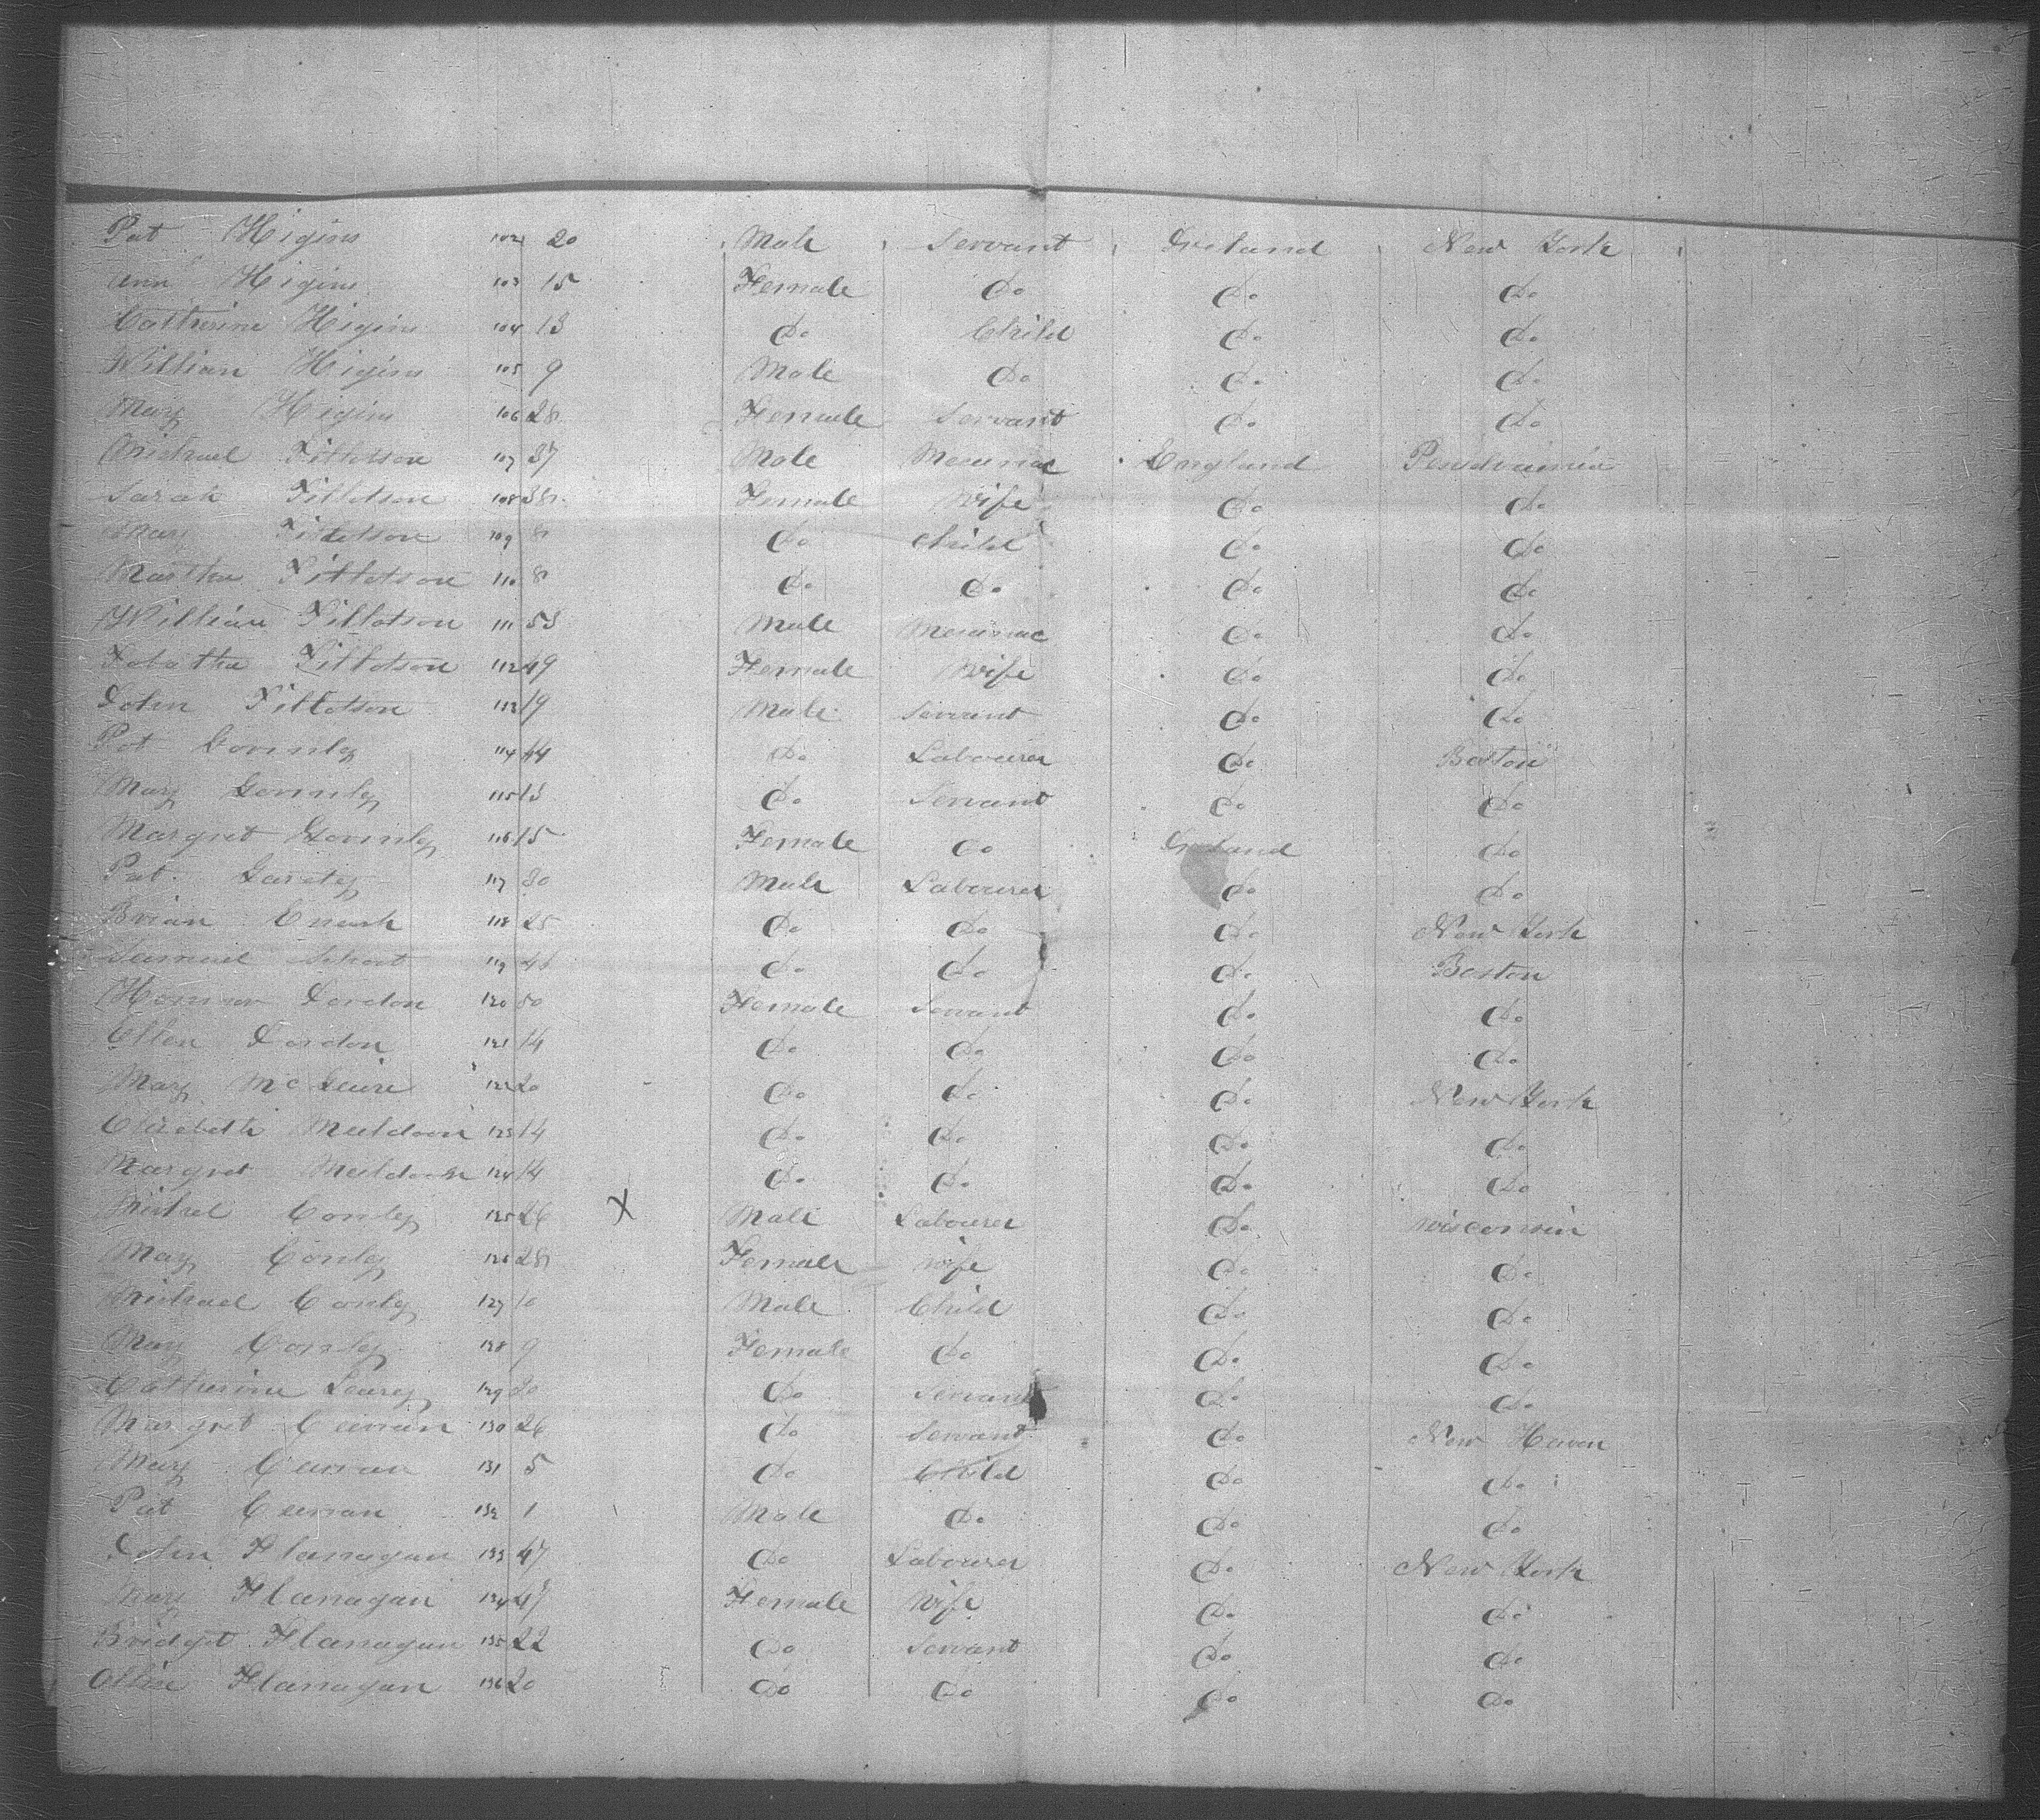 Pat Higins 102 20 Male Servant Ireland New York
Ann Higins 103 15 Female Do Do Do
Catherine Higins 104 13 Do Child Do Do
William Higins 105 9 Male Do Do Do
Mary Higins 106 28 Female Servant Do Do
Michael Tillotson 107 37 Male England
Sarah Tillotson 108 38 Female Wife Do Do
Mary Tillotson 109 8 Do Child Do Do
Martha Tillotson 110 8 Do Do Do Do
William Tillotson 111 53 Male Do Do
Tabatha Tillotson 112 49 Female Wife Do Do
John Tillotson 113 19 Male Servant Do Do
Pat Gormley 114 44 Do Labourer Do Boston
Mary Gormley 115 13 Do Servant Do Do
Margret Gormley 116 15 Female Do Ireland Do
Pat 117 30 Male Labourer Do Do
Brian 118 25 Do Do Do New York
Samuel 119 Do Do Do Boston
120 50 Female Servant Do Do
Ellen 121 14 Do Do Do Do
Mary McGuire 122 20 Do Do Do New York
Elizabeth Muldoon 123 14 Do Do Do Do
Margret Muldoon 124 14 Do Do Do Do
Michel Conley 125 26 X Male Labourer Do Wisconsin
Mary Conley 126 28 Female Wife Do Do
Michael Conley 127 10 Male Child Do Do
Mary Conley 128 9 Female Do Do Do
Catherine 129 Do Servant Do Do
Margret Curran 130 26 Do Servant Do New Haven
Mary Curran 131 5 Do Child Do Do
Pat Curran 132 1 Male Do Do Do
John Flanagan 133 47 Do Labourer Do New York
Mary Flanagan 134 47 Female Wife Do Do
Bridget Flanagan 135 22 Do Servant Do Do
Flanagan 136 20 Do Do Do Do